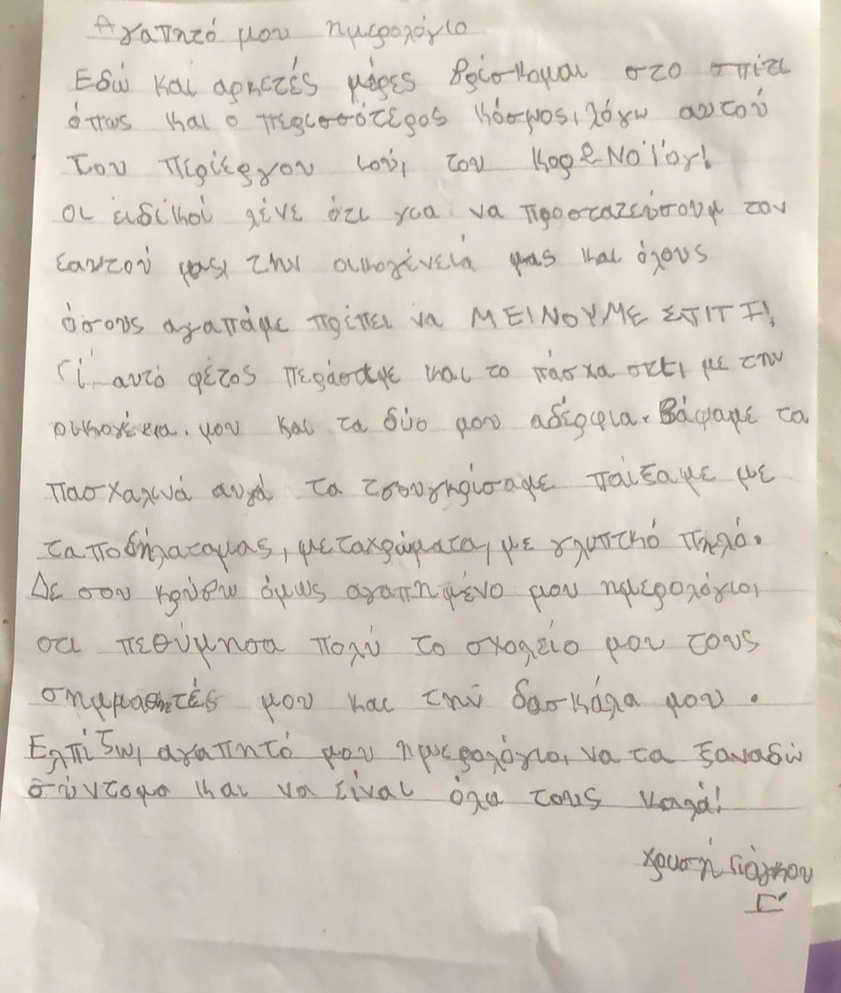 Αγαπητό μου ημερολόγιο
Εδώ και αρκετές μέρες βρίσκομαι στο σπίτι
όπως και ο περισσότερος κόσμος, λόγω αυτού
του περίεργου ιού, του
οι ειδικοί λένε ότι για να τον
εαυτού μας, την οικογένειά μας και όλους
όσους αγαπάμε πρέπει να ΜΕΙΝΟΥΜΕ ΣΠΙΤΙ!
Γι' αυτό φέτος περάσαμε και το πάσχα σπίτι με την
μου και τα δύο μου αδέρφια. Βάψαμε τα
πασχαλινά αυγά τα τσουγκρίσαμε παίξαμε με
τα ποδήλατα μας, με τα χρώματα, με γλυπτικό πηλό.
Δε σου κρύβω όμως αγαπημένο μου ημερολόγιο,
οτι πεθύμησα πολύ το σχολείο μου τους
μου και την δασκάλα μου.
Ελπίζω, αγαπητό μου ημερολόγιο, να τα ξαναδώ
σύντομα και να είναι όλα τους καλά!
Χρυσή
Γ'